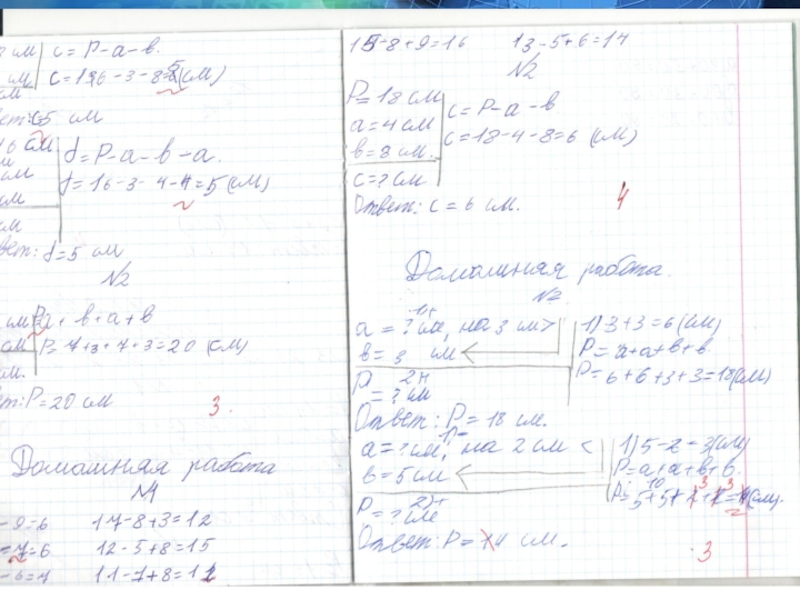 см | c = P-a-в.
см | c=16-3-8=5(см)
см
ет: c=5 см
16 см | d=P-a-в-a.
см | d=16-3-4-4=5(см)
см
см
вет: d=5 см
№2
см | P=a+в+a+в
см | P=7+3+7+3=20 (см)
см.
ет: P=20 см
3.
Домашняя работа
№1
-9=6 17-8+3=12
=7=6 12-5+8=15
-6=7 11-7+8=12
15-8+9=16 13-5+6=14
№2
P=18 см
a=4 см | c=P-a-в
в=8 см. | c=18-4-8=6 (см)
c=? см
Ответ: c=6 см.
4
Домашняя работа.
№2
a=? см, на 3 см> 1) 3+3=6(см)
в=3 см P=a+a+в+в.
P=? см P=6+6+3+3=18(см)
Ответ: P=18 см.
a=? см, на 2 см < 1) 5-2=3(см)
в=5 см P=a+a+в+в.
P=? см
Ответ: P=14 см.
3